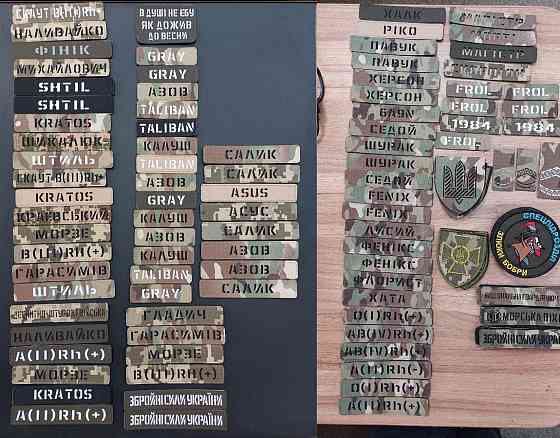 СКАУТ B(III)Rh+
НАЛИВАЙКО
ФІНІК
МИХАЙЛОВИЧ
SHTIL
SHTIL
KRATOS
ШТИЛЬ
СКАУТ B(III)Rh+
KRATOS
МОРЗЕ
B(III)Rh(+)
ГАРАСИМІВ
ШТИЛЬ
НАЛИВАЙКО
A(II)Rh(+)
МОРЗЕ
KRATOS
A(II)Rh(+)
В ДУШІ НЕ ЕБУ
ЯК ДОЖИВ
ДО ВЕСНИ
GRAY
GRAY
АЗОВ
TALIBAN
TALIBAN
КАЛУШ
TALIBAN
АЗОВ
GRAY
КАЛУШ
АЗОВ
КАЛУШ
TALIBAN
GRAY
ГАЛАИЧ
ГАРАСИМІВ
МОРЗЕ
B(III)Rh(+)
ЗБРОЙНІ СИЛИ УКРАЇНИ
ЗБРОЙНІ СИЛИ УКРАЇНИ
САЛИК
САЛИК
ASUS
АСУС
САЛИК
АЗОВ
АЗОВ
САЛИК
ХАЛК
РІКО
ПАВУК
ПАВУК
ХЕРСОН
ХЕРСОН
БАУН
СЕДОЙ
ШУРАК
ШУРАК
СЕДОЙ
FENIX
FENIX
ЛИСИЙ
ФЕНІКС
ФЕНІКС
ФЛОРИСТ
ХАТА
O(I)Rh(+)
AB(IV)Rh(+)
AB(IV)Rh(+)
A(II)Rh(+)
O(I)Rh(+)
A(II)Rh(+)
МАГІСТР
МАГІСТР
FROL
FROL
FROL
FROL
1984
1984
FROL
СПЕЦПІДРОЗДІЛ
БОБРИ
ЗБРОЙНІ СИЛИ УКРАЇНИ